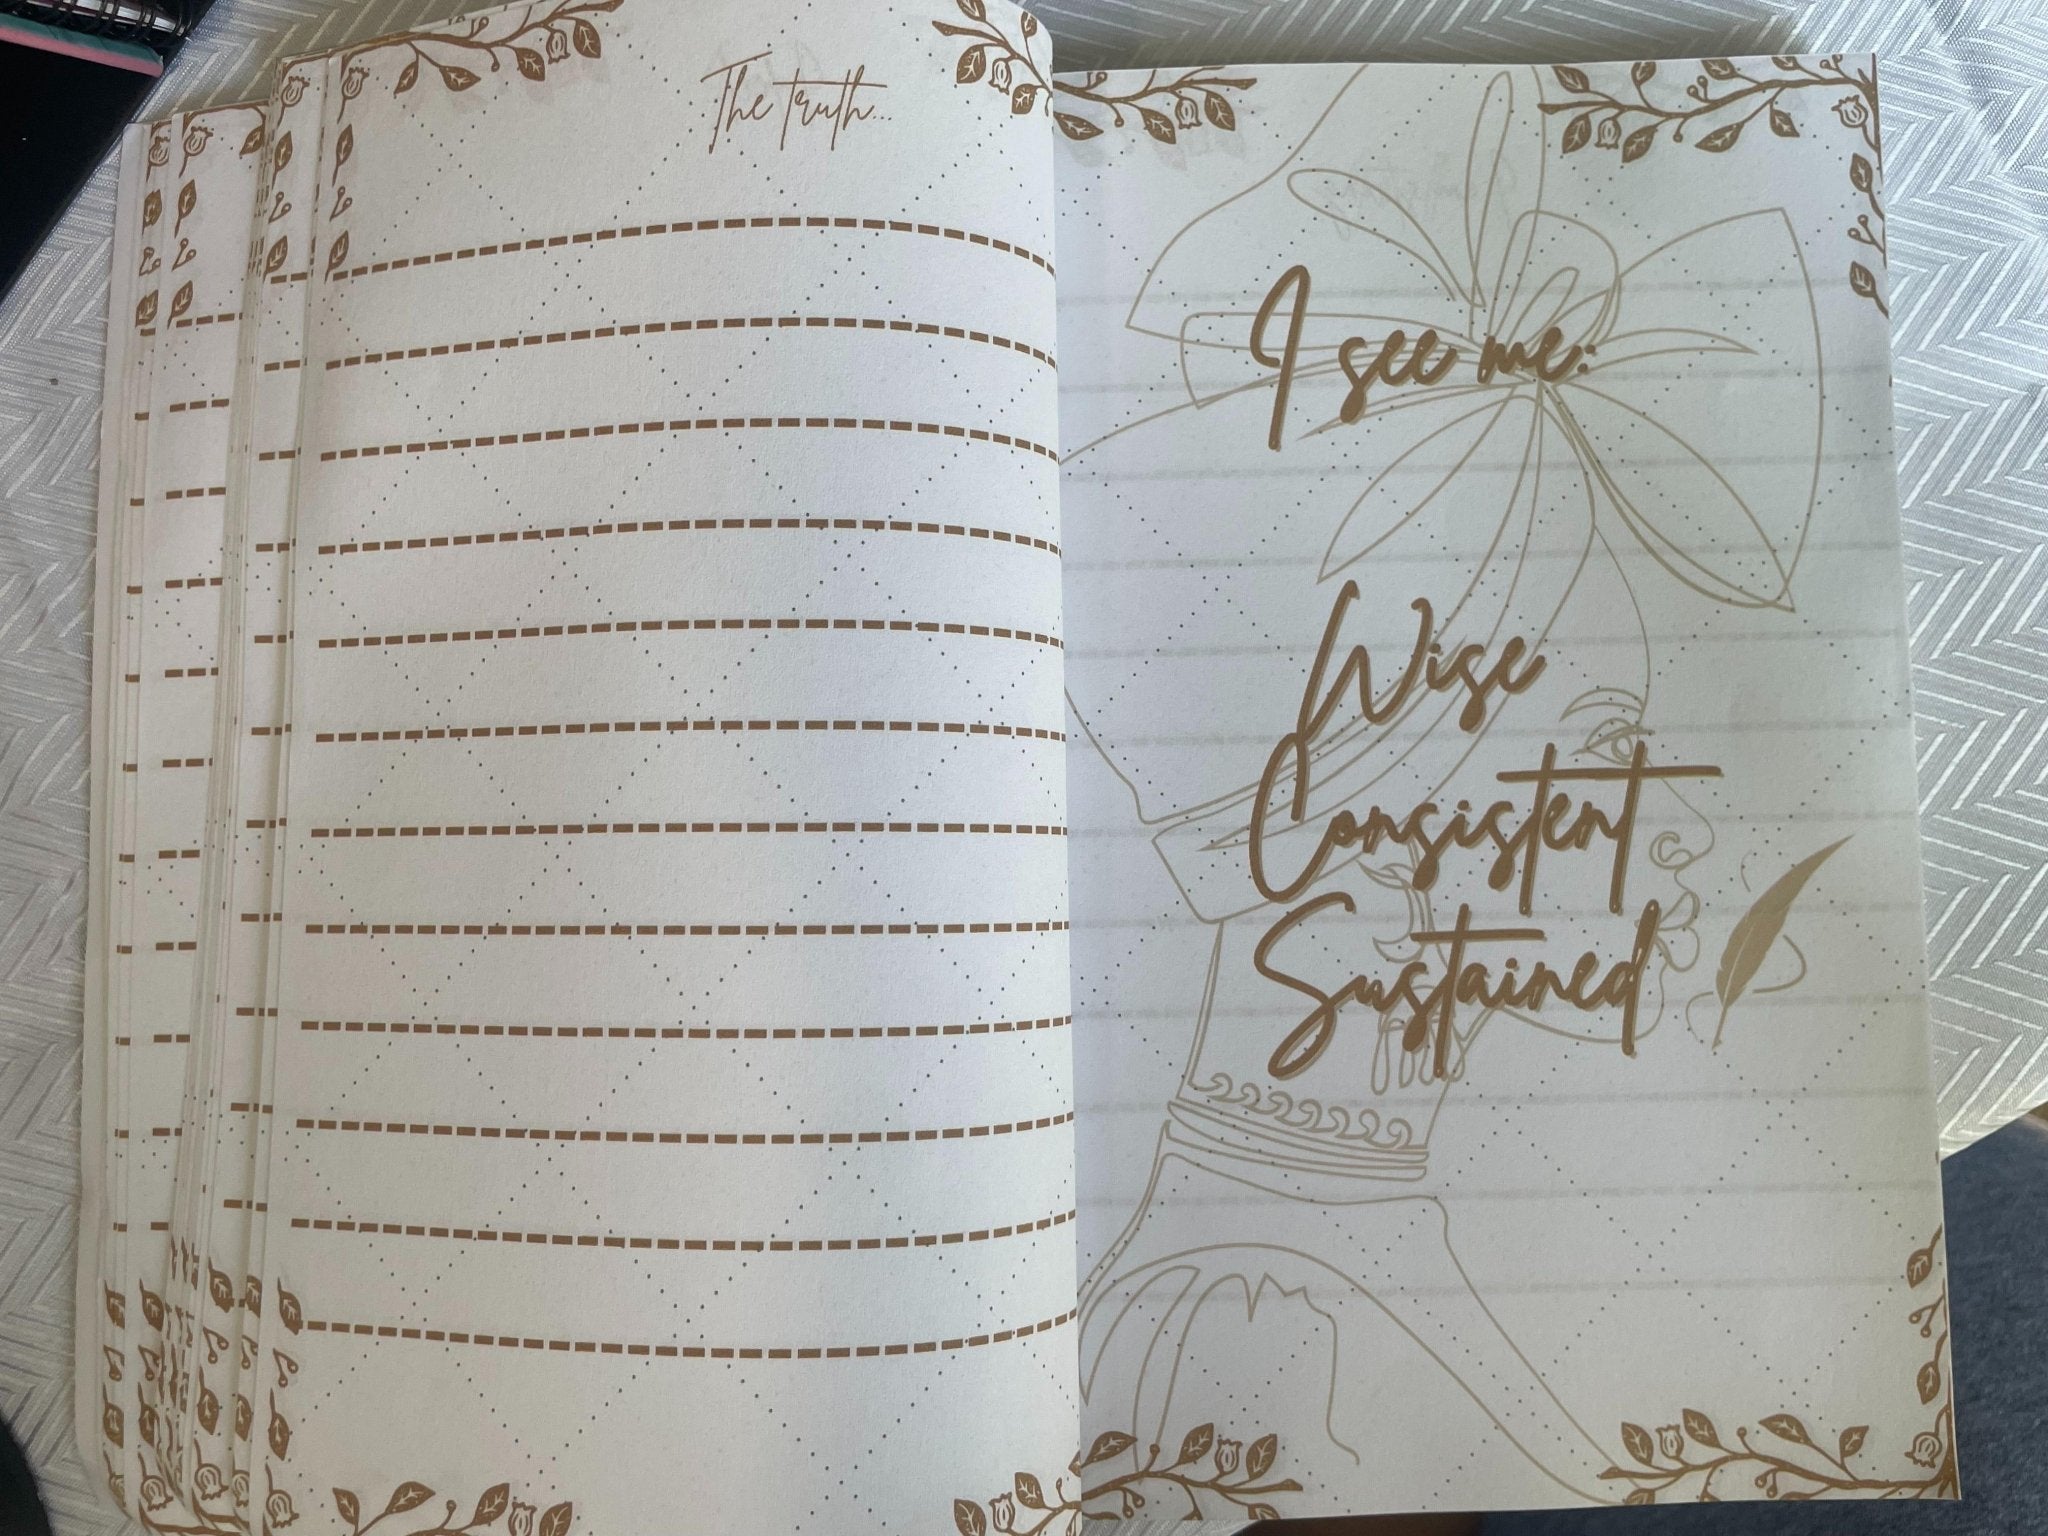 The truth...
I see me:
Wise
Consistent
Sustained